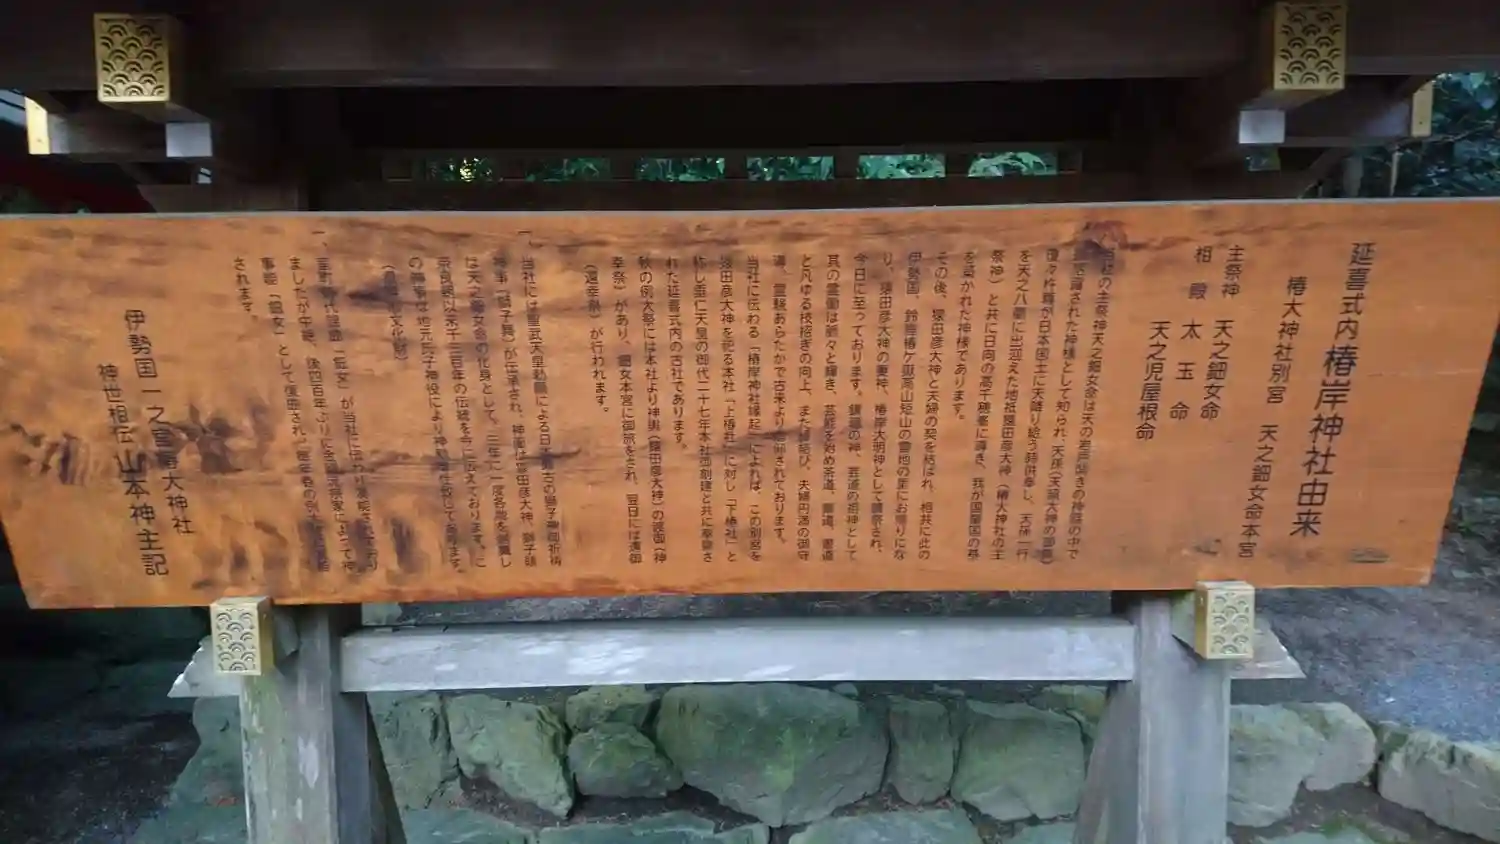 延喜式内 椿岸神社由来
椿大神社別宮 天之鈿女命本宮
主祭神 天之鈿女命
相殿 太玉命
天之児屋根命
当社の主祭神天之鈿女命は天の岩戸開きの神話の中で
活躍された神様として知られ、天孫(天照大神の御孫)
瓊々杵尊が日本国土に天降り給う時供奉し、天孫一行
を天之八衢に出迎えた地祇猿田彦大神(椿大神社の主
祭神)と共に日向の高千穂峯に導き、我が国肇国の基
を築かれた神様であります。
その後、猿田彦大神と夫婦の契を結ばれ、相共に此の
伊勢国、鈴鹿椿ケ嶽高山短山の霊地の里にお帰りにな
り、猿田彦大神の妻神、椿岸大明神として鎮祭され、
今日に至っております。鎮魂の神、芸道の祖神として
其の霊徳は脈々と輝き、芸能を始め茶道、華道、書道
と凡ゆる技芸の向上、また縁結び、夫婦円満の御守
護、霊験あらたかで古来より信仰されております。
当社に伝わる「椿岸神社縁起」によれば、この別宮を
猿田彦大神を祀る本社「上椿社」に対し「下椿社」と
称し垂仁天皇の御代二十七年本社御創建と共に奉斎さ
れた延喜式内の古社であります。
秋の例大祭には本社より神輿(猿田彦大神)の渡御(神
幸祭)があり、鈿女本宮に御旅をされ、翌日には還御
(還幸祭)が行われます。
一、当社には聖武天皇勅願による日本最古の獅子舞御祈祷
神事(獅子舞)が伝承され、神面は猿田彦大神、獅子頭
は天之鈿女命の化身として、三年に一度各地を巡舞し
奈良朝以来千三百年の伝統を今に伝えております。こ
の舞事は地元氏子神役により神勤奉仕致しております。
一、室町時代謡曲「鈿女」が当社に伝わり
ましたが中絶、後四百年ぶりに金剛流宗家によって神
事能「鈿女」として復曲され、毎年春の例大祭に奉納
されます。
伊勢国一之宮椿大神社
神世相伝山本神主記